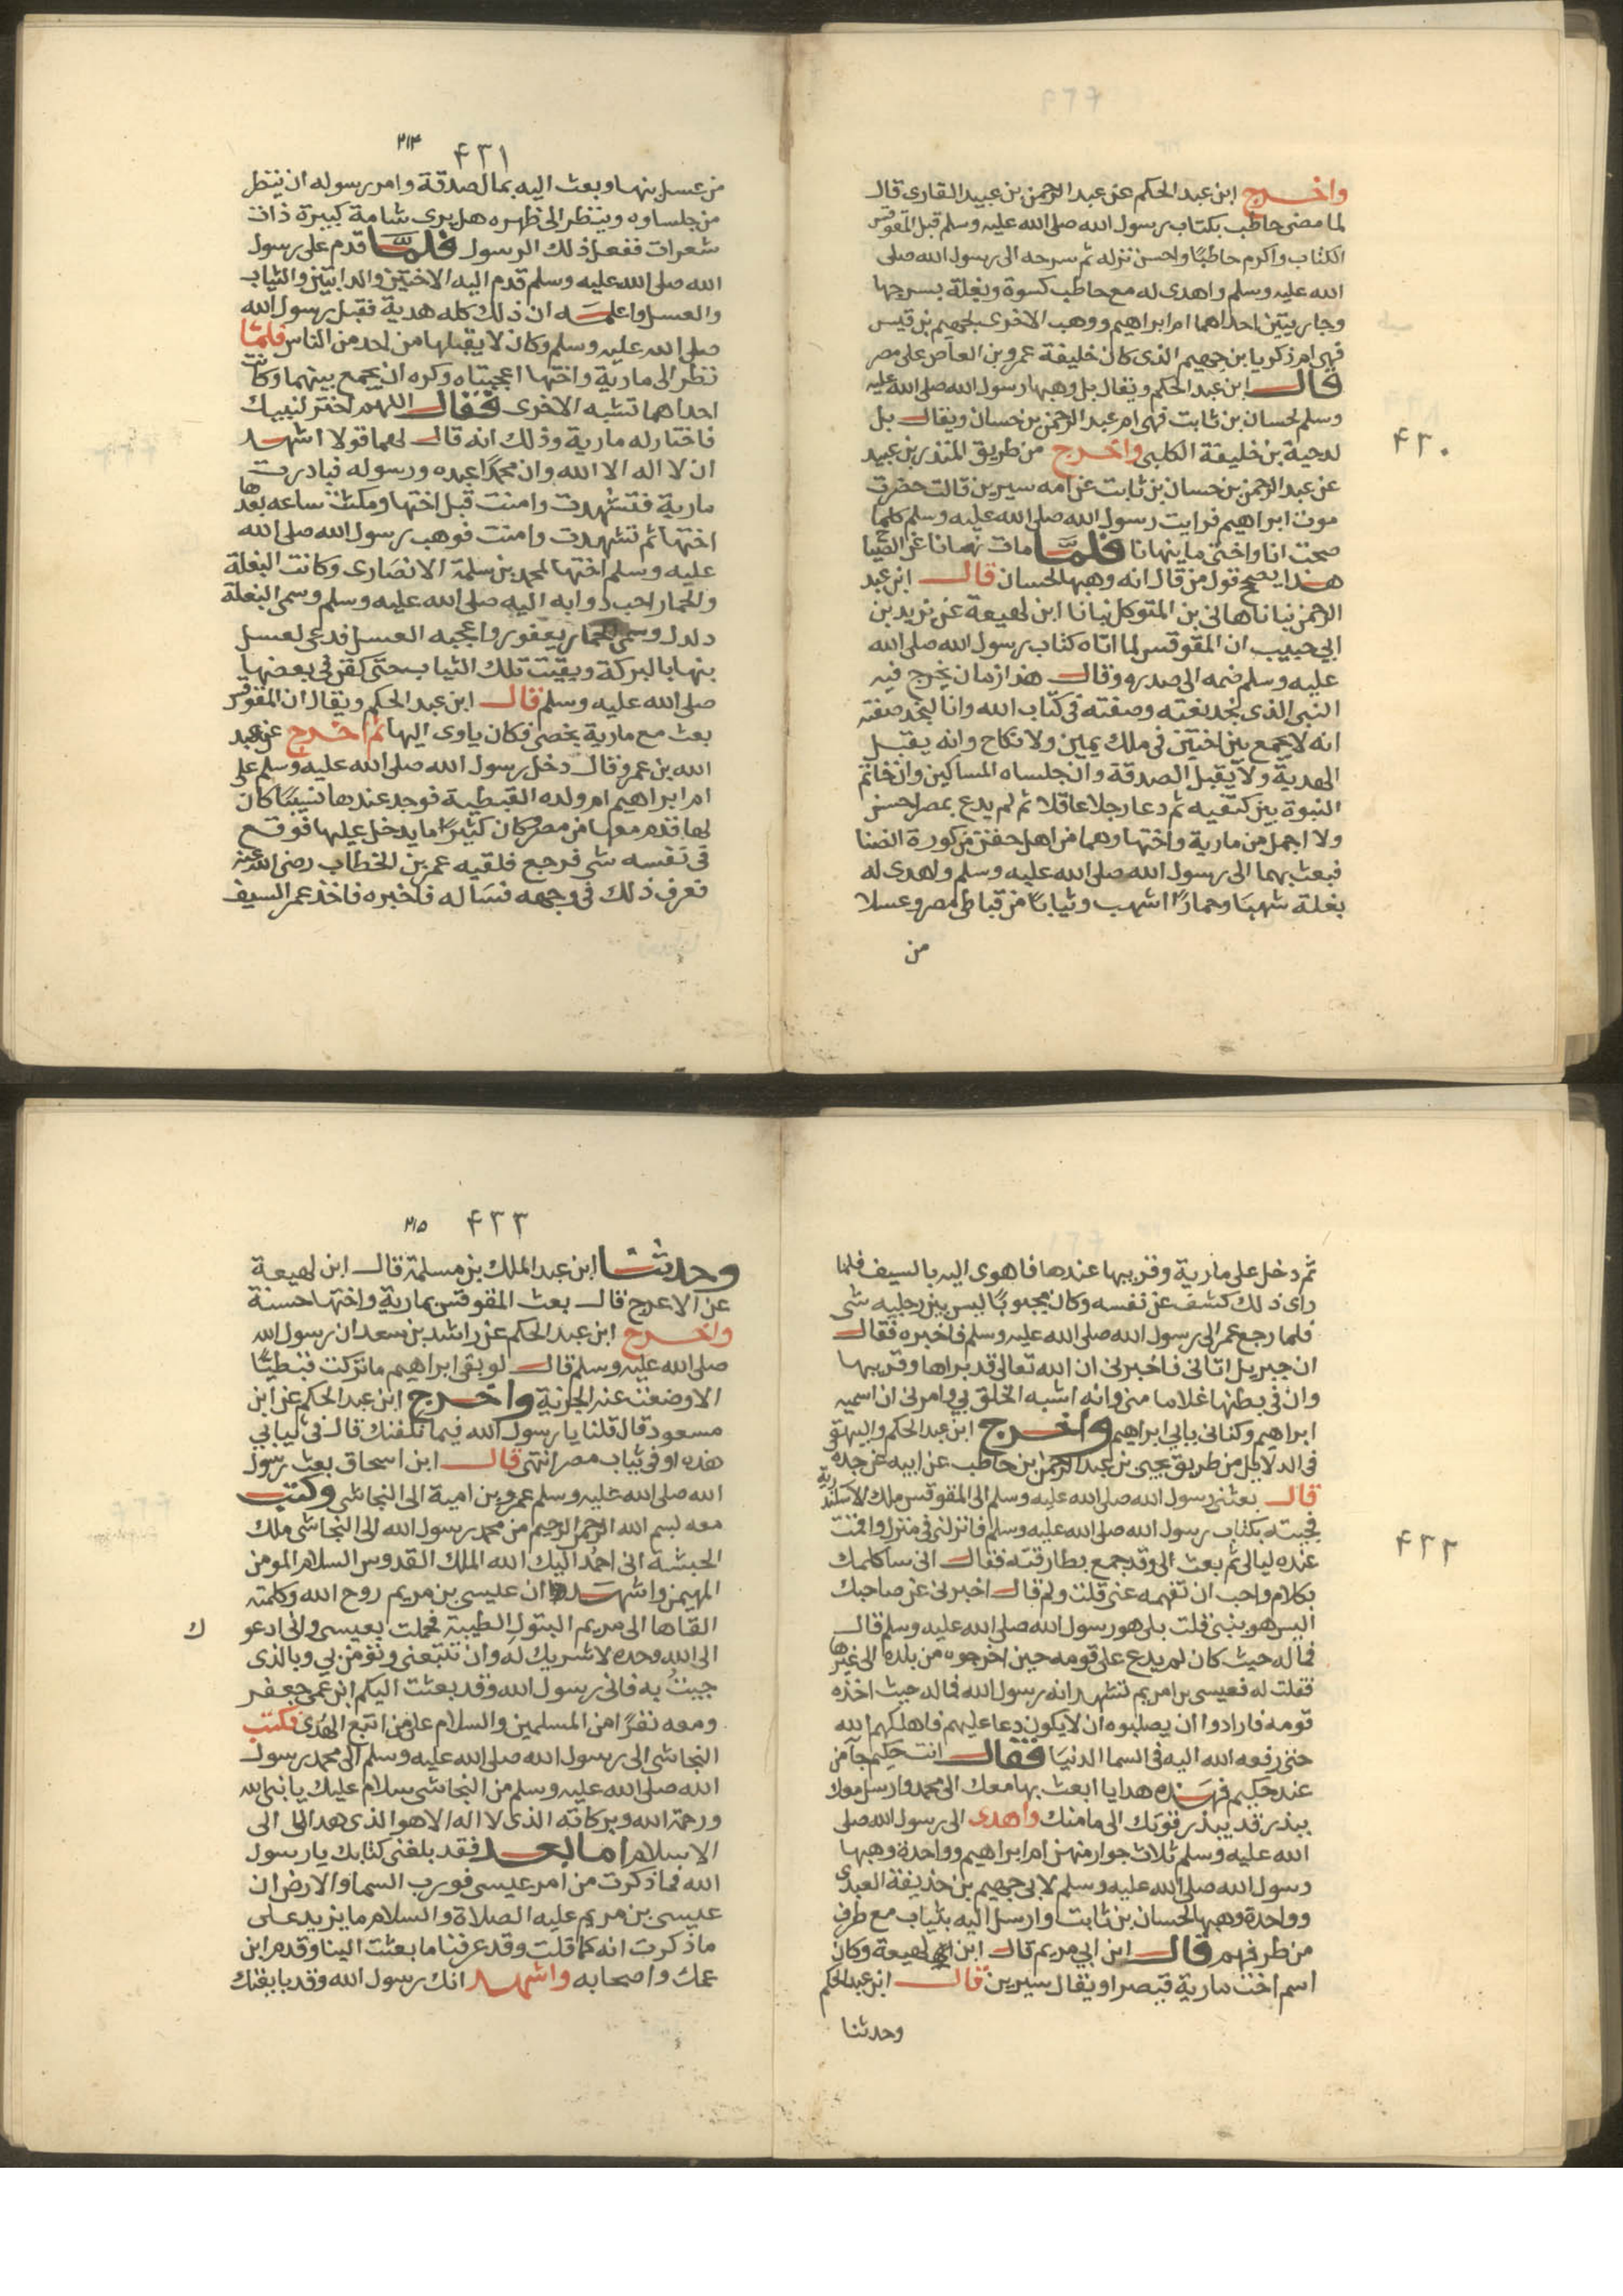 واخرج ابن عبد الحكم عن عبد الرحمن بن عبيد القارى قال
لما مضى حاطب بكتاب رسول الله صلى الله عليه وسلم قبل المقوقس
الكتاب واكرم حاطبًا واحسن نزله ثم سرحه الى رسول الله صلى
الله عليه وسلم واهدى له مع حاطب كسوة وبغلة بسرجها
وجاريتين احداهما ام ابراهيم ووهب الاخرى لجهيم بن قيس
فهى ام زكريا بن جهيم الذى كان خليفة عمرو بن العاص على مصر
قال ابن عبد الحكم ويقال بل وهبها رسول الله صلى الله عليه
وسلم لحسان بن ثابت فهى ام عبد الرحمن بن حسان ويقال بل
لدحية بن خليفة الكلبى واخرج من طريق المنذر بن عبيد
۴۳۰
عن عبد الرحمن بن حسان بن ثابت عن امه سيرين قالت حضرت
موت ابراهيم فرايت رسول الله صلى الله عليه وسلم كلما
صحت انا واختى ما ينهانا فلما مات نهانا عن الصياح
هذا يصحح قول من قال انه وهبها لحسان قال ابن عبد
الرحمن نبانا هانى بن المتوكل نبانا ابن لهيعة عن يزيد بن
ابى حبيب ان المقوقس لما اتاه كتاب رسول الله صلى الله
عليه وسلم ضمه الى صدره وقال هذا زمان يخرج فيه
النبى الذى نجد نعته وصفته فى كتاب الله وانا لنجد صفته
انه لا يجمع بين اختين فى ملك يمين ولا نكاح وانه يقبل
الهدية ولا يقبل الصدقة وان جلساه المساكين وان خاتم
النبوة بين كتفيه ثم دعا رجلا عاقلا ثم لم يدع بمصر احسن
ولا اجمل من مارية واختها وهما من اهل حفن من كورة انصنا
فبعث بهما الى رسول الله صلى الله عليه وسلم واهدى له
بغلة شهبا وحمارًا اشهب وثيابًا من قباطى مصر وعسلا
من
۲۱۴
۴۳۱
من عسل بنها وبعث اليه بمال صدقة وامر رسوله ان ينظر
من جلساوه وينظر الى ظهره هل يرى شامة كبيرة ذات
شعرات ففعل ذلك الرسول فلما قدم على رسول
الله صلى الله عليه وسلم قدم اليه الاختين والدابتين والثياب
والعسل واعلمه ان ذلك كله هدية فقبل رسول الله
صلى الله عليه وسلم وكان لا يقبلها من احد من الناس فلما
نظر الى مارية واختها اعجبتاه وكره ان يجمع بينهما وكانت
احداهما تشبه الاخرى فقال اللهم اختر لنبيك
فاختار له مارية وذلك انه قال لهما قولا اشهد
ان لا اله الا الله وان محمدًا عبده ورسوله فبادرت
مارية فتشهدت وامنت قبل اختها ومكثت ساعه بعدها
اختها ثم تشهدت وامنت فوهب رسول الله صلى الله
عليه وسلم اختها لمحمد بن سلمة الانصارى وكانت البغلة
والحمار احب دوابه اليه صلى الله عليه وسلم وسمى البغلة
دلدل وسمى الحمار يعفور واعجبه العسل فدعى لعسل
بنها بالبركة وبقيت تلك الثياب حتى كفن فى بعضها
صلى الله عليه وسلم قال ابن عبد الحكم ويقال ان المقوقس
بعث مع مارية بخصى فكان ياوى اليها ثم اخرج عن عبد
الله بن عمرو قال دخل رسول الله صلى الله عليه وسلم على
ام ابراهيم ام ولده القبطية فوجد عندها نسيبًا كان
لها قدم معها من مصر وكان كثيرًا ما يدخل عليها فوقع
فى نفسه شى فرجع فلقيه عمر بن الخطاب رضى الله عنه
فعرف ذلك فى وجهه فساله فاخبره فاخذ عمر السيف
ثم دخل على مارية وقريبها عندها فاهوى اليه بالسيف فلما
راى ذلك كشف عن نفسه وكان مجبوبًا ليس بين رجليه شى
فلما رجع عمر الى رسول الله صلى الله عليه وسلم فاخبره فقال
ان جبريل اتانى فاخبرنى ان الله تعالى قد براها وقريبها
وان فى بطنها غلاما منى وانه اشبه الخلق بى وامرنى ان اسميه
ابراهيم وكنانى بابى ابراهيم واخرج ابن عبد الحكم والبيهقى
فى الدلايل من طريق يحيى بن عبد الرحمن بن حاطب عن ابيه عن جده
قال بعثنى رسول الله صلى الله عليه وسلم الى المقوقس ملك الاسكندرية
فجيته بكتاب رسول الله صلى الله عليه وسلم فانزلنى فى منزل واقمت
۴۳۲
عنده ليالى ثم بعث الى وقد جمع بطارقته فقال انى ساكلمك
بكلام واحب ان تفهمه عنى قلت ولم قال اخبرنى عن صاحبك
اليس هو بنبى قلت بلى هو رسول الله صلى الله عليه وسلم قال
فما له حيث كان لم يدع على قومه حين اخرجوه من بلده الى غيرها
فقلت له فعيسى بن مريم تشهد انه رسول الله فما له حيث اخذه
قومه فارادوا ان يصلبوه ان لا يكون دعا عليهم فاهلكهم الله
حتى رفعه الله اليه فى السما الدنيا فقال انت حكيم جآ من
عند حكيم فهذه هدايا ابعث بها معك الى محمد وارسل معك
ببذرقة يبذرقونك الى مامنك واهدى الى رسول الله صلى
الله عليه وسلم ثلاث جوار منهن ام ابراهيم وواحدة وهبها
رسول الله صلى الله عليه وسلم لابى جهيم بن حذيفة العبدى
وواحدة وهبها لحسان بن ثابت وارسل اليه بثياب مع طرف
من طرفهم قال ابن ابى مريم قال ابن لهيعة وكان
اسم اخت مارية قيصرا ويقال سيرين قال ابن عبد الحكم
وحدثنا
۲۱۵
۴۳۳
وحدثنا ابن عبد الملك بن مسلمة قال ابن لهيعة
عن الاعرج قال بعث المقوقس بمارية واختها حسنة
واخرج ابن عبد الحكم عن راشد بن سعد ان رسول الله
صلى الله عليه وسلم قال لو بقى ابراهيم ما تركت قبطيًا
الا وضعت عنه الجزية واخرج ابن عبد الحكم عن ابن
مسعود قال قلنا يا رسول الله فيما نكفنك قال فى ثيابى
هذه او فى ثياب مصر انتهى قال ابن اسحاق بعث رسول
الله صلى الله عليه وسلم عمرو بن امية الى النجاشى وكتب
معه بسم الله الرحمن الرحيم من محمد رسول الله الى النجاشى ملك
الحبشة انى احمد اليك الله الملك القدوس السلام المومن
المهيمن واشهد ان عيسى بن مريم روح الله وكلمته
القاها الى مريم البتول الطيبة فحملت بعيسى وانى ادعو
ك
الى الله وحده لا شريك له وان تتبعنى وتؤمن بى وبالذى
جيت به فانى رسول الله وقد بعثت اليكم ابن عمى جعفر
ومعه نفرًا من المسلمين والسلام على من اتبع الهدى فكتب
النجاشى الى رسول الله صلى الله عليه وسلم الى محمد رسول
الله صلى الله عليه وسلم من النجاشى سلام عليك يا نبى الله
ورحمة الله وبركاته الذى لا اله الا هو الذى هدانى الى
الاسلام اما بعد فقد بلغنى كتابك يا رسول
الله فما ذكرت من امر عيسى فورب السما والارض ان
عيسى بن مريم عليه الصلاة والسلام ما يزيد على
ما ذكرت انه كما قلت وقد عرفنا ما بعثت الينا وقدم ابن
عمك واصحابه واشهد انك رسول الله وقد بايعتك